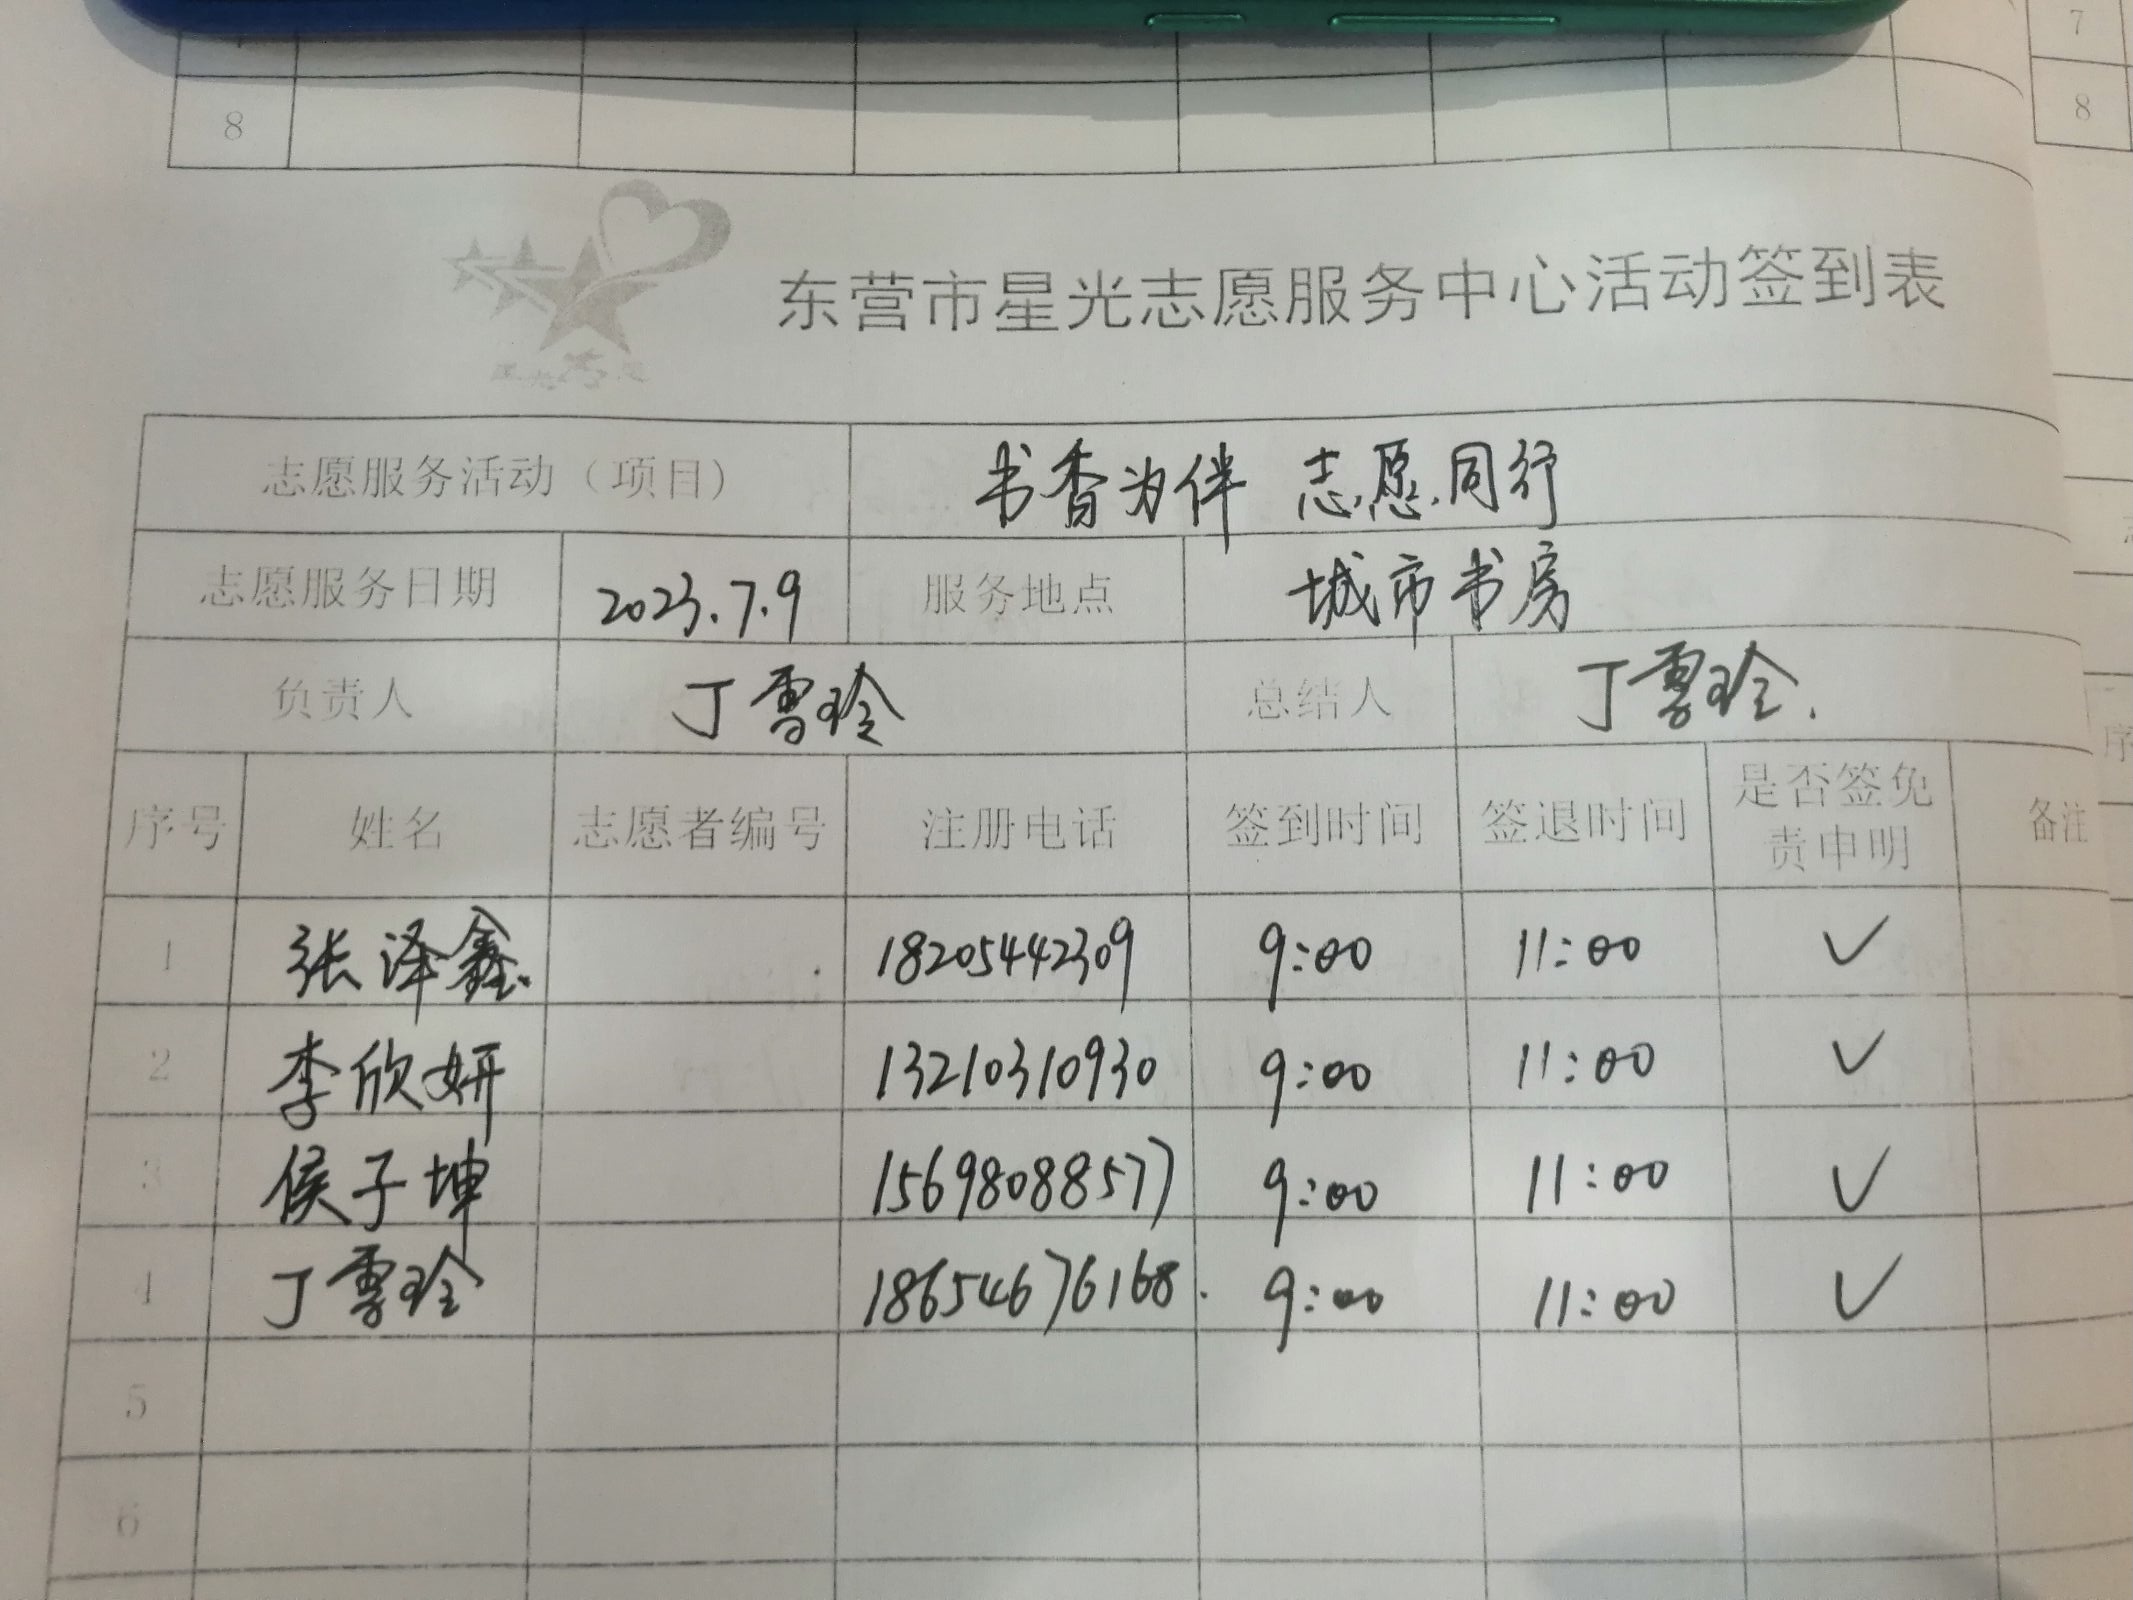 7
8
8
东营市星光志愿服务中心活动签到表
志愿服务活动（项目） 书香为伴 志愿同行
志愿服务日期 2023.7.9 服务地点 城市书房
负责人 丁雪玲 总结人 丁雪玲.
序号 姓名 志愿者编号 注册电话 签到时间 签退时间 是否签免责申明 备注
1 张泽鑫 18205442309 9:00 11:00 ✓
2 李欣妍 13210310930 9:00 11:00 ✓
3 侯子坤 15698088577 9:00 11:00 ✓
4 丁雪玲 18654676168. 9:00 11:00 ✓
5
6
序